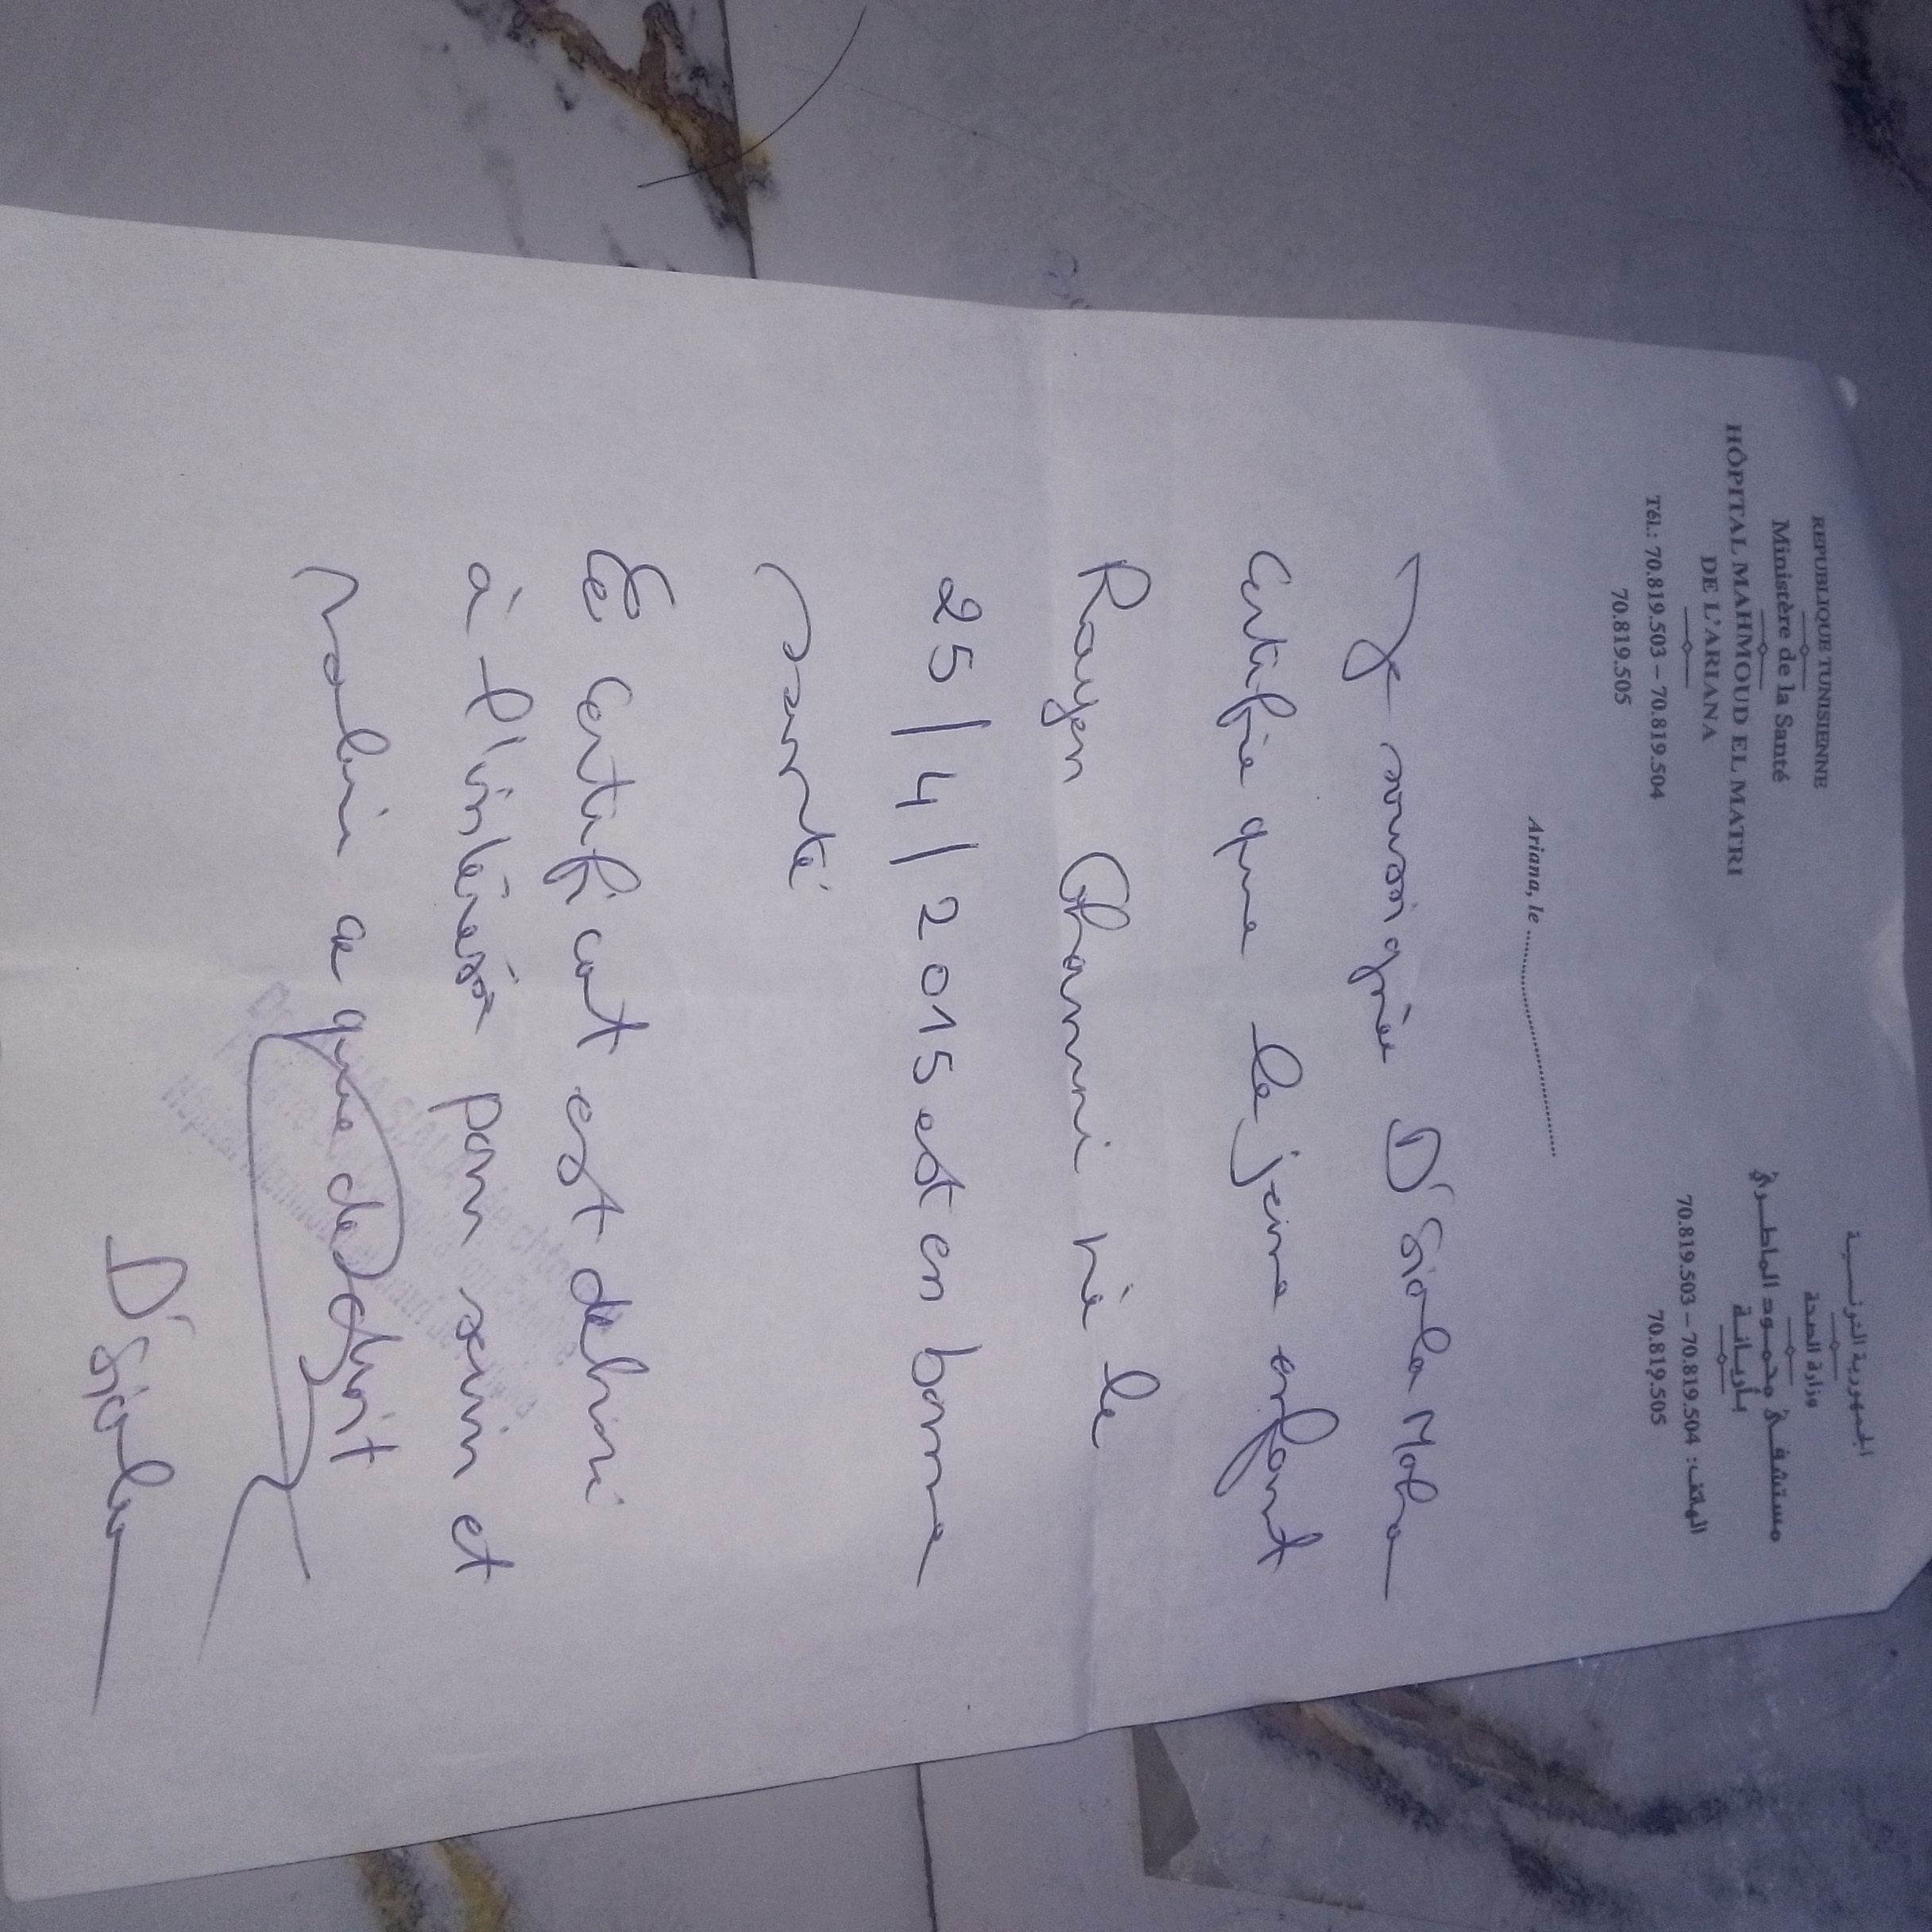 REPUBLIQUE TUNISIENNE
Ministère de la Santé
HÔPITAL MAHMOUD EL MATRI
DE L'ARIANA
Tél.: 70.819.503 – 70.819.504
70.819.505
الجمهورية التونسية
وزارة الصحة
مستشفى محمود الماطري
بأريانة
الهاتف: 70.819.504 – 70.819.503
70.819.505
Ariana, le
Je soussignée Dr Siala Maha
certifie que le jeune enfant
Rayen Ghanmi né le
25/4/2015 est en bonne
santé
Ce certificat est delivré
à l'intéressé pour servir et
valoir ce que de droit
Dr Siala